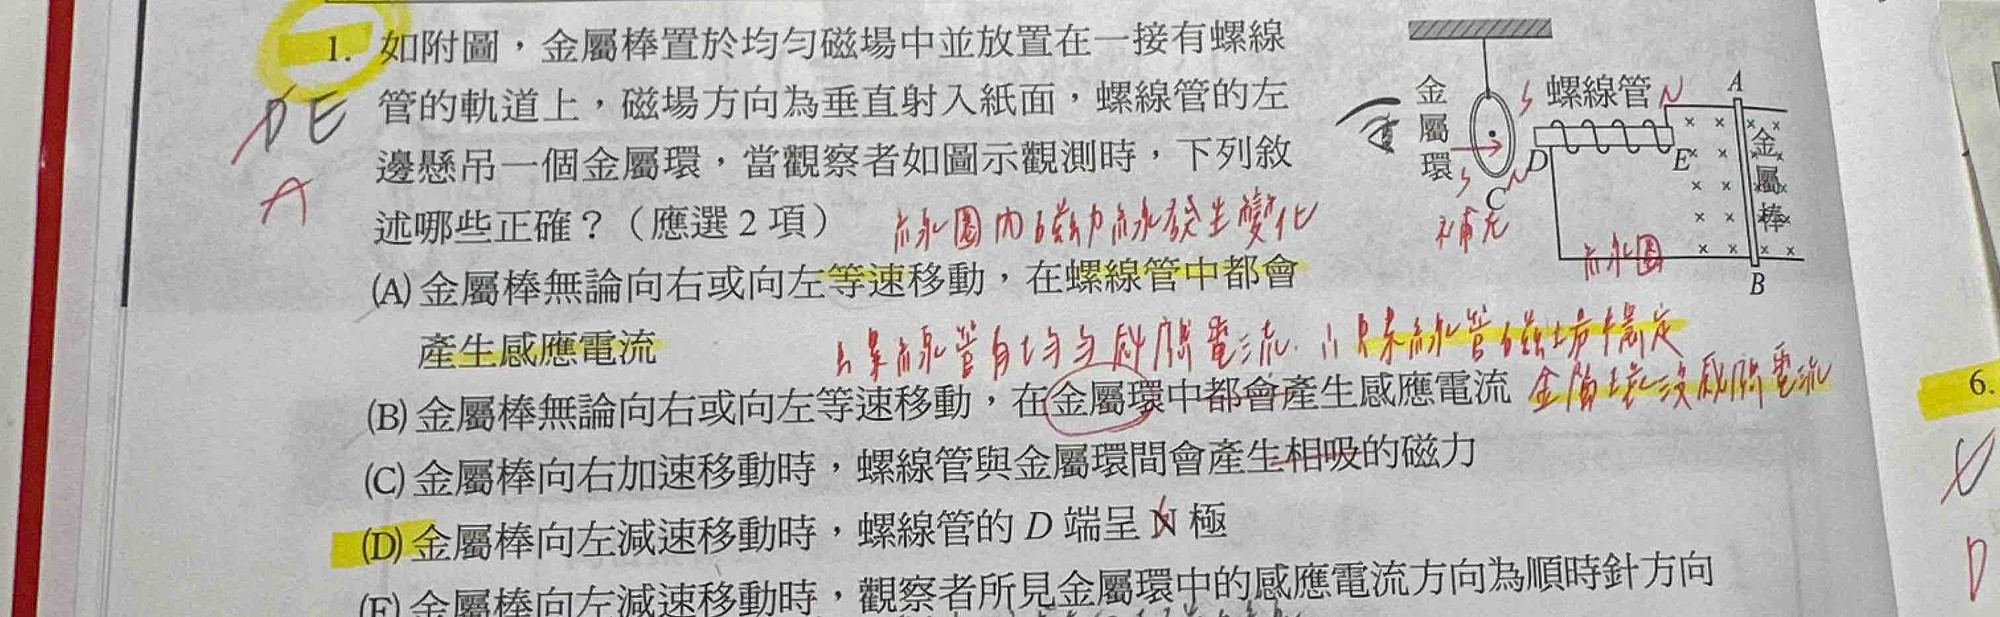 1. 如附圖，金屬棒置於均勻磁場中並放置在一接有螺線
管的軌道上，磁場方向為垂直射入紙面，螺線管的左
邊懸吊一個金屬環，當觀察者如圖示觀測時，下列敘
述哪些正確？（應選 2 項）
DE
A
線圈內磁力線發生變化
(A) 金屬棒無論向右或向左等速移動，在螺線管中都會
產生感應電流
螺線管有均勻感應電流
螺線管磁場穩定
(B) 金屬棒無論向右或向左等速移動，在金屬環中都會產生感應電流
金屬環沒感應電流
(C) 金屬棒向右加速移動時，螺線管與金屬環間會產生相吸的磁力
(D) 金屬棒向左減速移動時，螺線管的 D 端呈 N 極
(E) 金屬棒向左減速移動時，觀察者所見金屬環中的感應電流方向為順時針方向
金屬環
S
螺線管
N
A
D
E
S
N
C
補充
線圈
金屬棒
B
6.
D